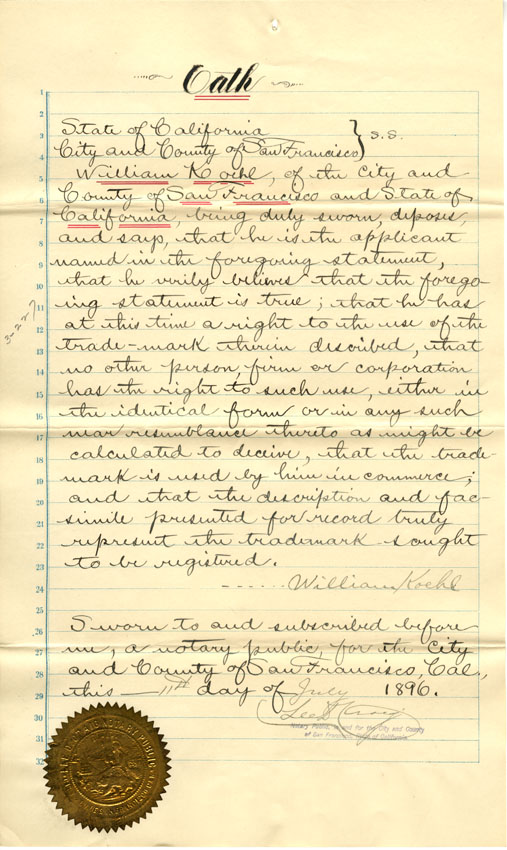 Oath
State of California
City and County of San Francisco } S.S.
William Koehl, of the City and
County of San Francisco and State of
California, being duly sworn, deposes,
and says, that he is the applicant
named in the foregoing statement,
that he verily believes that the forego-
ing statement is true; that he has
at this time a right to the use of the
trade-mark therein described, that
no other person, firm or corporation
has the right to such use, either in
the identical form or in any such
near resemblance thereto as might be
calculated to deceive, that the trade-
mark is used by him in commerce;
and that the description and fac-
simile presented for record truly
represent the trademark sought
to be registered.
William Koehl
Sworn to and subscribed before
me, a notary public, for the City
and County of San Francisco, Cal.,
this 11th day of July 1896.
Notary Public, in and for the City and County
of San Francisco, State of California.
1
2
3
4
5
6
7
8
9
10
11
12
13
14
15
16
17
18
19
20
21
22
23
24
25
26
27
28
29
30
31
32